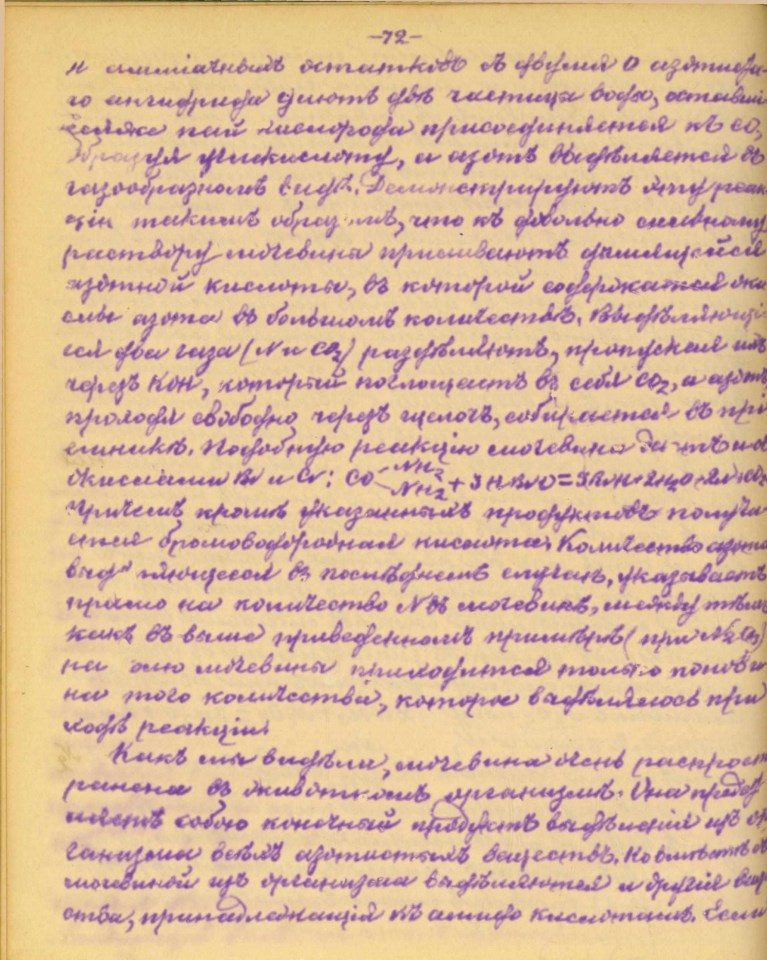 -72-
и амміачныхъ остатковъ съ двумя О азотиста-
го ангидрида даютъ двѣ частицы воды, оставші
еся же пай кислорода присоединяется къ СО,
образуя углекислоту, а азотъ выдѣляется въ
газообразномъ видѣ. Демонстрируютъ эту реак-
цію такимъ образомъ, что къ довольно сильному
раствору мочевины приливаютъ дымящейся
азотной кислоты, въ которой содержатся оки
слы азота въ большомъ количествѣ. Выдѣляющі
еся два газа (N и CO2) раздѣляютъ, пропуская ихъ
черезъ KOH, который поглощаетъ въ себя CO2, а азотъ,
проходя свободно черезъ щелочь, собирается въ прі
емникъ. Подобную реакцію мочевина даетъ и съ
окислами Br и Cl: CO NH2 NH2 + 3HBrO = 3BrH + 2H2O + 2N + CO2
причемъ кромѣ указанныхъ продуктовъ получа
ется бромоводородная кислота. Количество азота
выдѣляющееся въ послѣднемъ случаѣ, указываетъ
прямо на количество N въ мочевинѣ, между тѣмъ
какъ въ выше приведенномъ примѣрѣ (при N2O3)
на долю мочевины приходится только полови
на того количества, которое выдѣлялось при
ходѣ реакціи.
Какъ мы видѣли, мочевина очень распрост
ранена въ животномъ организмѣ. Она предст
ляетъ собою конечный продуктъ выдѣленія изъ ор
ганизма всѣхъ азотистыхъ веществъ. Но вмѣстѣ съ
мочевиной изъ организма выдѣляются и другія веще
ства, принадлежащія къ амидо кислотамъ. Если